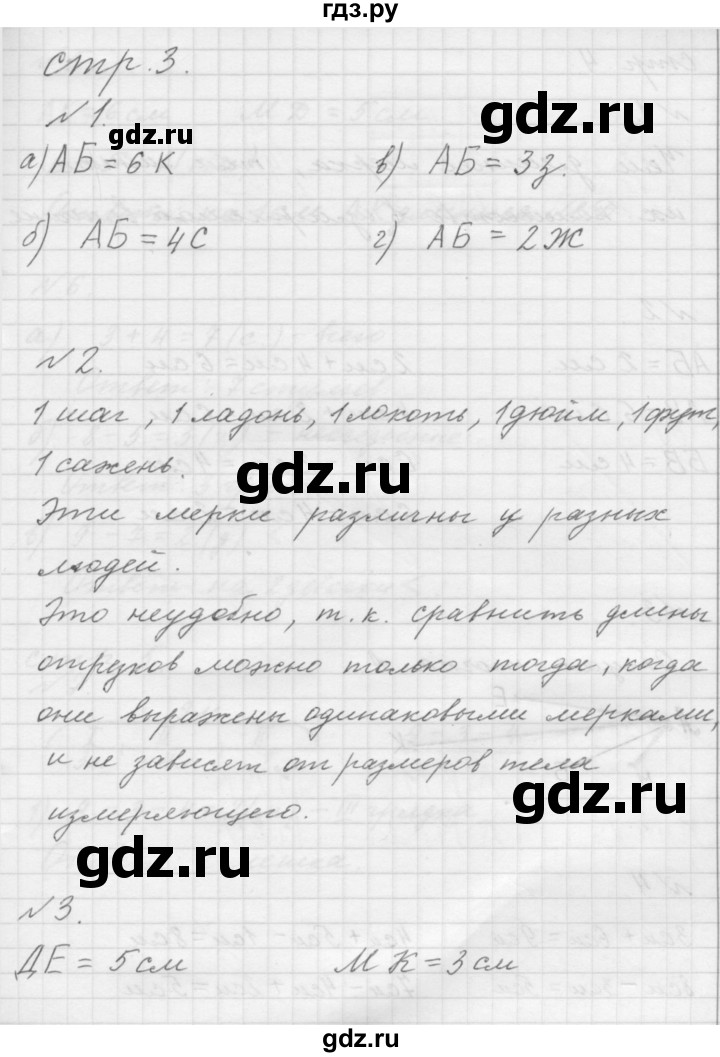 гдз.ру
стр. 3.
№ 1.
gdz.ru
а) АБ = 6 К в) АБ = 3 з.
б) АБ = 4 С г) АБ = 2 Ж
№ 2.
1 шаг, 1 ладонь, 1 локоть, 1 дюйм, 1 фут,
1 сажень.
gdz.ru
Эти мерки различны у разных
людей.
Это неудобно, т.к. сравнить длины
отрезков можно только тогда, когда
они выражены одинаковыми мерками,
и не зависят от размеров тела
gdz.ru
измеряющего.
gdz.ru
№ 3.
ДЕ = 5 см МК = 3 см
gdz.ru